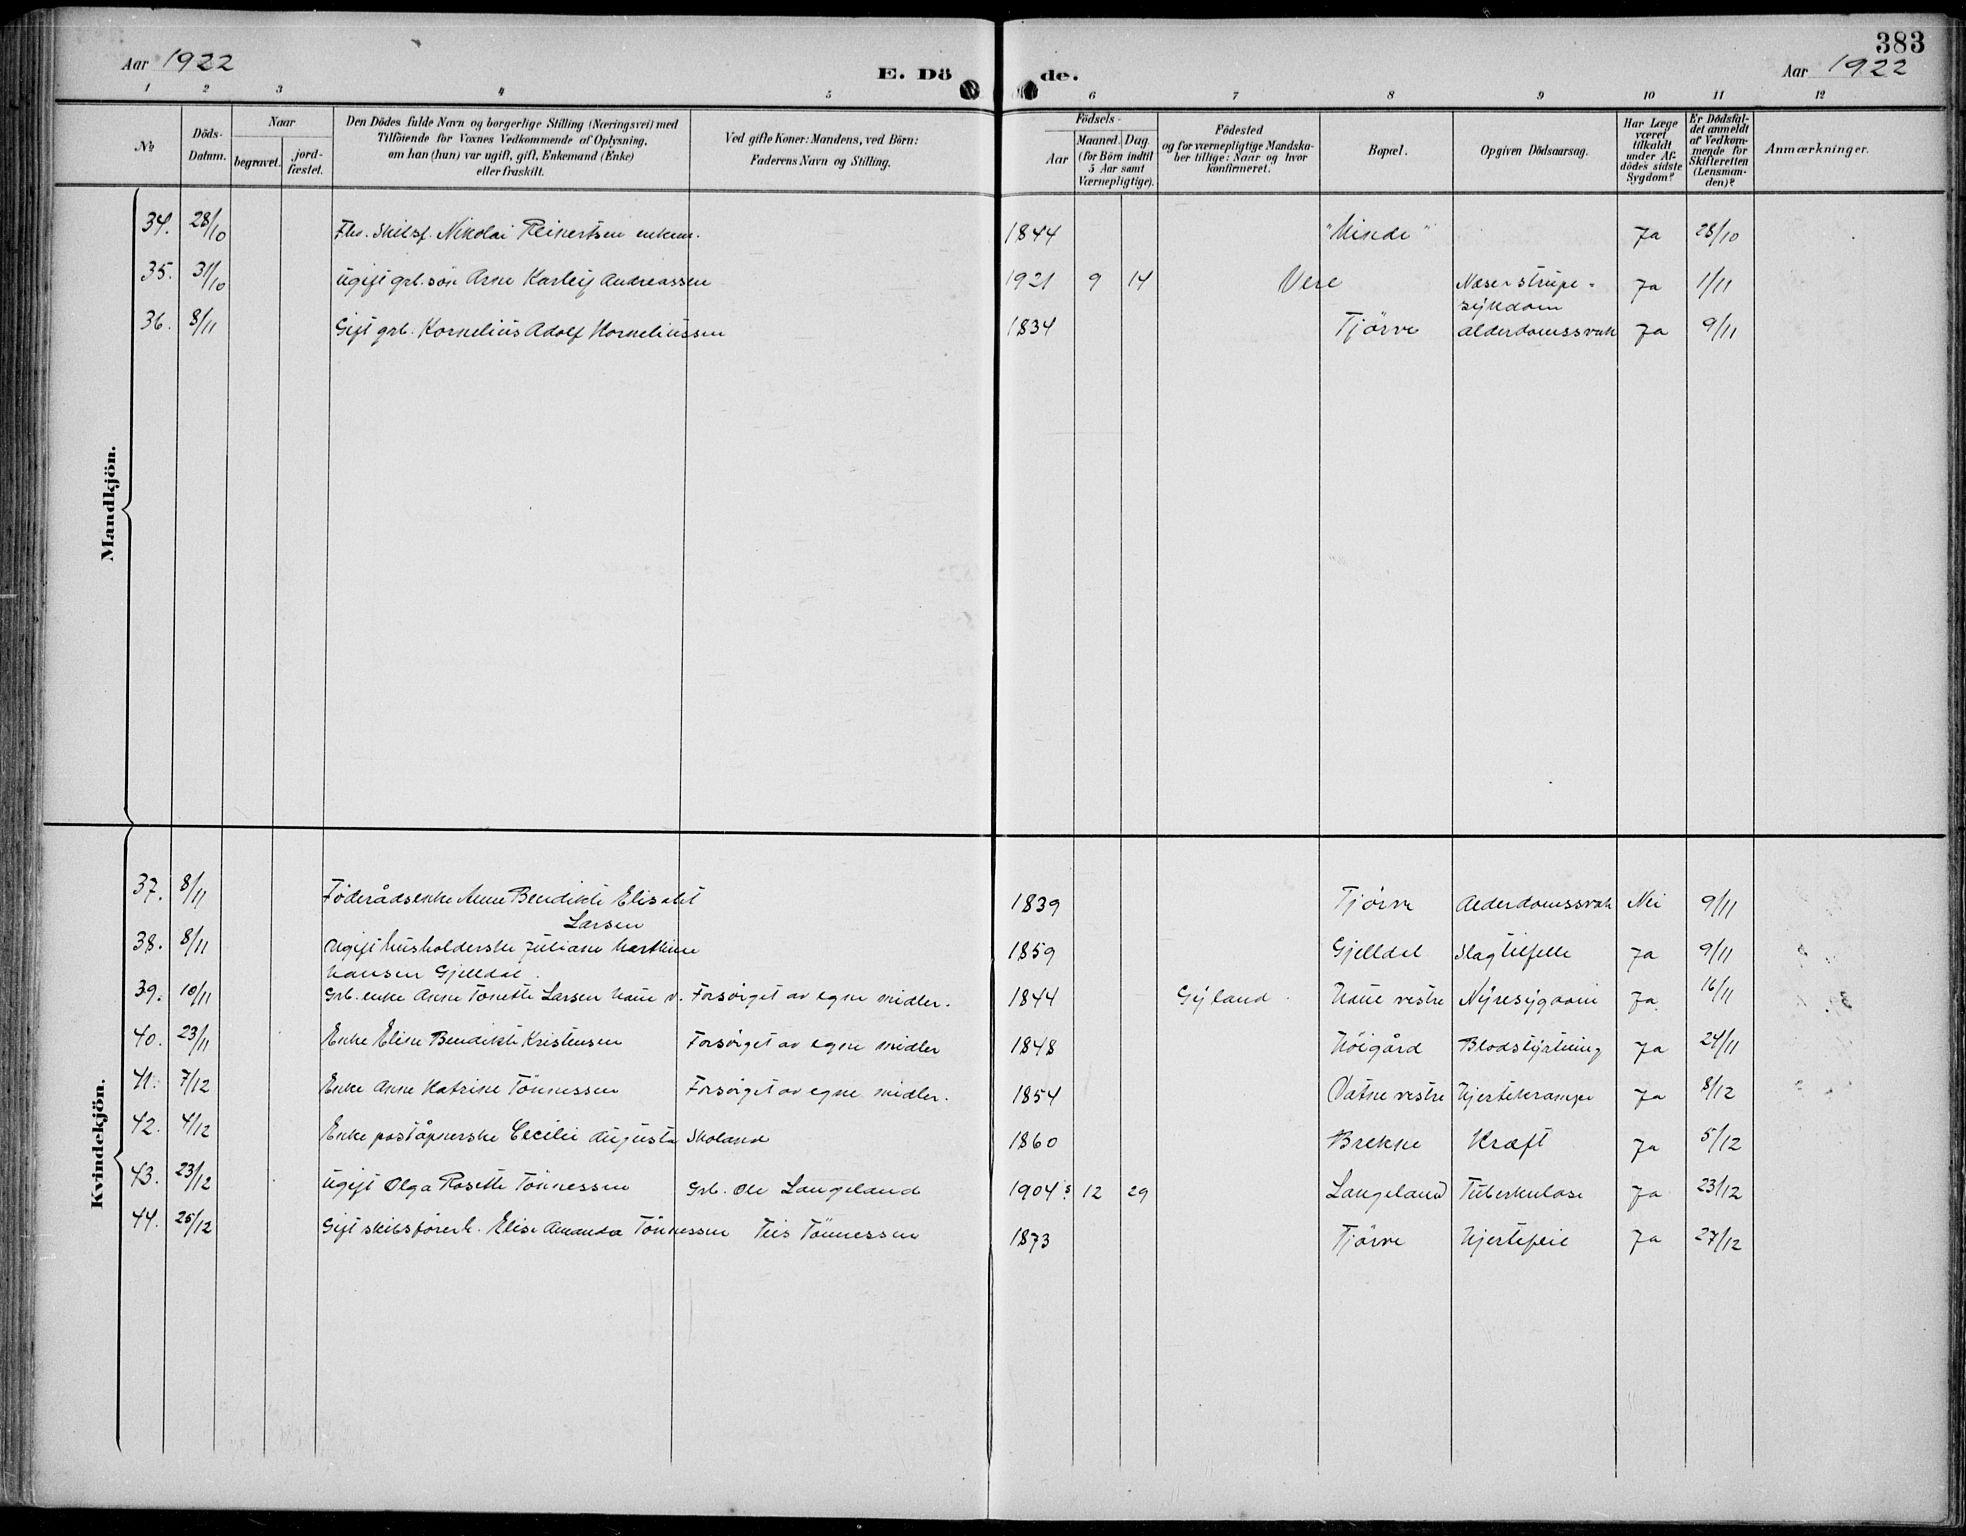 383
Aar 1922
E. Dö de.
Aar 1922
1 2 3 4 5 6 7 8 9 10 11 12
№
Döds-
Datum.
Naar
begravet.
jord-
fæstet.
Den Dödes fulde Navn og borgerlige Stilling (Næringsvei) med
Tilföiende for Voxnes Vedkommende af Oplysning,
om han (hun) var ugift, gift, Enkemand (Enke)
eller fraskilt.
Ved gifte Koner: Mandens, ved Börn:
Faderens Navn og Stilling.
Födsels-
Aar
Maaned. Dag
(for Börn indtil
5 Aar samt
Værnepligtige).
Födested
og for værnepligtige Mandska-
ber tillige: Naar og hvor
konfirmeret.
Bopæl.
Opgiven Dödsaarsag.
Har Læge
været
tilkaldt
under Af-
dödes sidste
Sygdom?
Er Dödsfal-
det anmeldt
af Vedkom-
mende for
Skifteretten
(Lensman-
den)?
Anmærkninger.
Mandkjön.
34. 28/10 Fhv. Skibsf. Nikolai Reinertsen enkem. 1844 "Minde" Ja 28/10
35. 31/10 Ugift grb. sön Arne Karleif Andreassen 1921 9 14 Vere Næse & strupe- Ja 1/11
sykdom
36. 8/11 Gift grb. Kornelius Adolf Korneliussen 1834 Tjörve Alderdomssvak Ja 9/11
Kvindekjön.
37. 8/11 Föderådsenke Anne Bendikte Elisabet 1839 Tjörve Alderdomssvak Nei 9/11
Larsen
38. 8/11 Ugift husholderske Juliane Marthine 1859 Gjelldal Slagtilfelle Ja 9/11
Hansen Gjelldal.
39. 10/11 Grb. enke Anne Tonette Larsen Haue v. Forsörget av egne midler. 1844 Gyland. Haue vestre Nyresygdom Ja 16/11
40. 23/11 Enke Eline Bendikte Kristensen Forsörget av egne midler 1848 Höigård Blodstyrtning Ja 24/11
41. 7/12 Enke Anne Katrine Tönnessen Forsörget av egne midler. 1854 Vatne vestre Hjertekrampe Ja 8/12
42. 4/12 Enke poståpnerske Cecilie Augusta Skoland 1860 Brekke Kræft Ja 5/12
43. 23/12 Ugift Olga Rosette Tönnessen Grb. Ole Langeland 1904 12 29 Langeland Tuberkulose Ja 23/12
44. 25/12 Gift skibsförerh. Elise Amanda Tönnessen Teis Tönnessen 1873 Tjörve Hjertefeil Ja 27/12